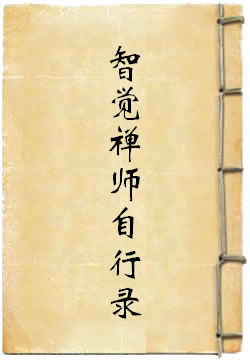 智觉禅师自行录